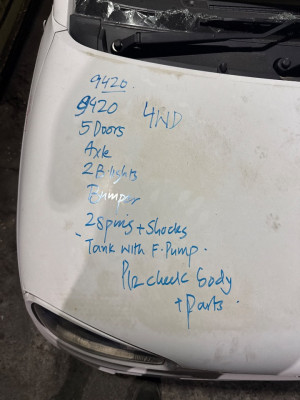 9420.
9420 4WD
5 Doors
Axle
2 B.lights
Bumper
2 Springs + Shocks
- Tank with F.Pump.
Plz check body
+ Parts.